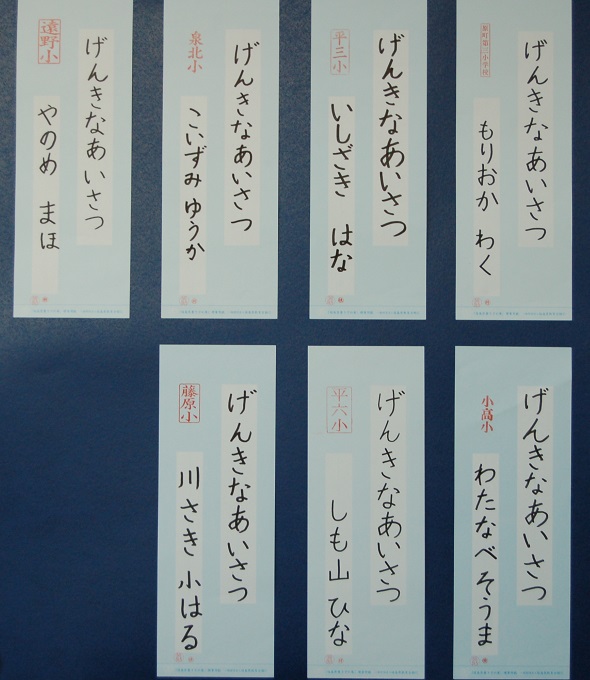 げんきなあいさつ
もりおか わく
げんきなあいさつ
平三小
いしざき はな
げんきなあいさつ
泉北小
こいずみ ゆうか
げんきなあいさつ
遠野小
やのめ まほ
げんきなあいさつ
小高小
わたなべ そうま
げんきなあいさつ
平六小
しも山 ひな
げんきなあいさつ
藤原小
川さき 小はる